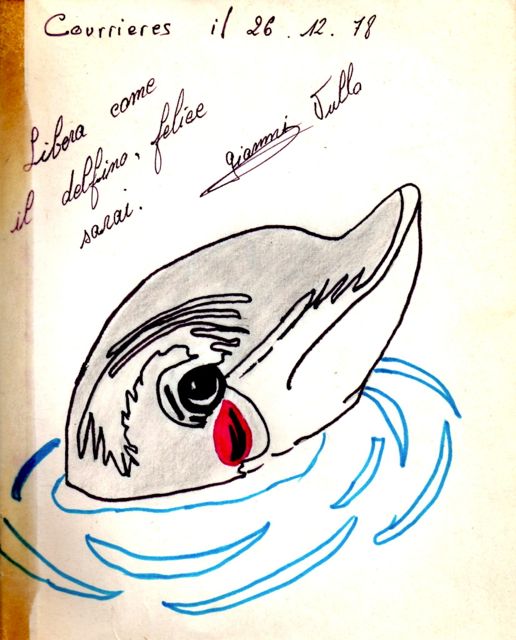 Courrieres il 26.12.78
Libera come
il delfino, felice
sarai.
Gianni Tullo